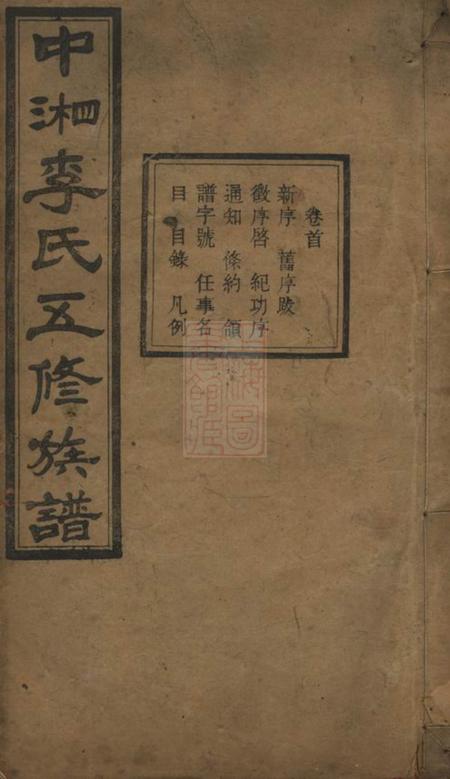 中湘李氏五修族譜
卷首
新序　舊序跋
徵序啓　紀功序
通知　條約　領
譜字號　任事名
目　目錄　凡例